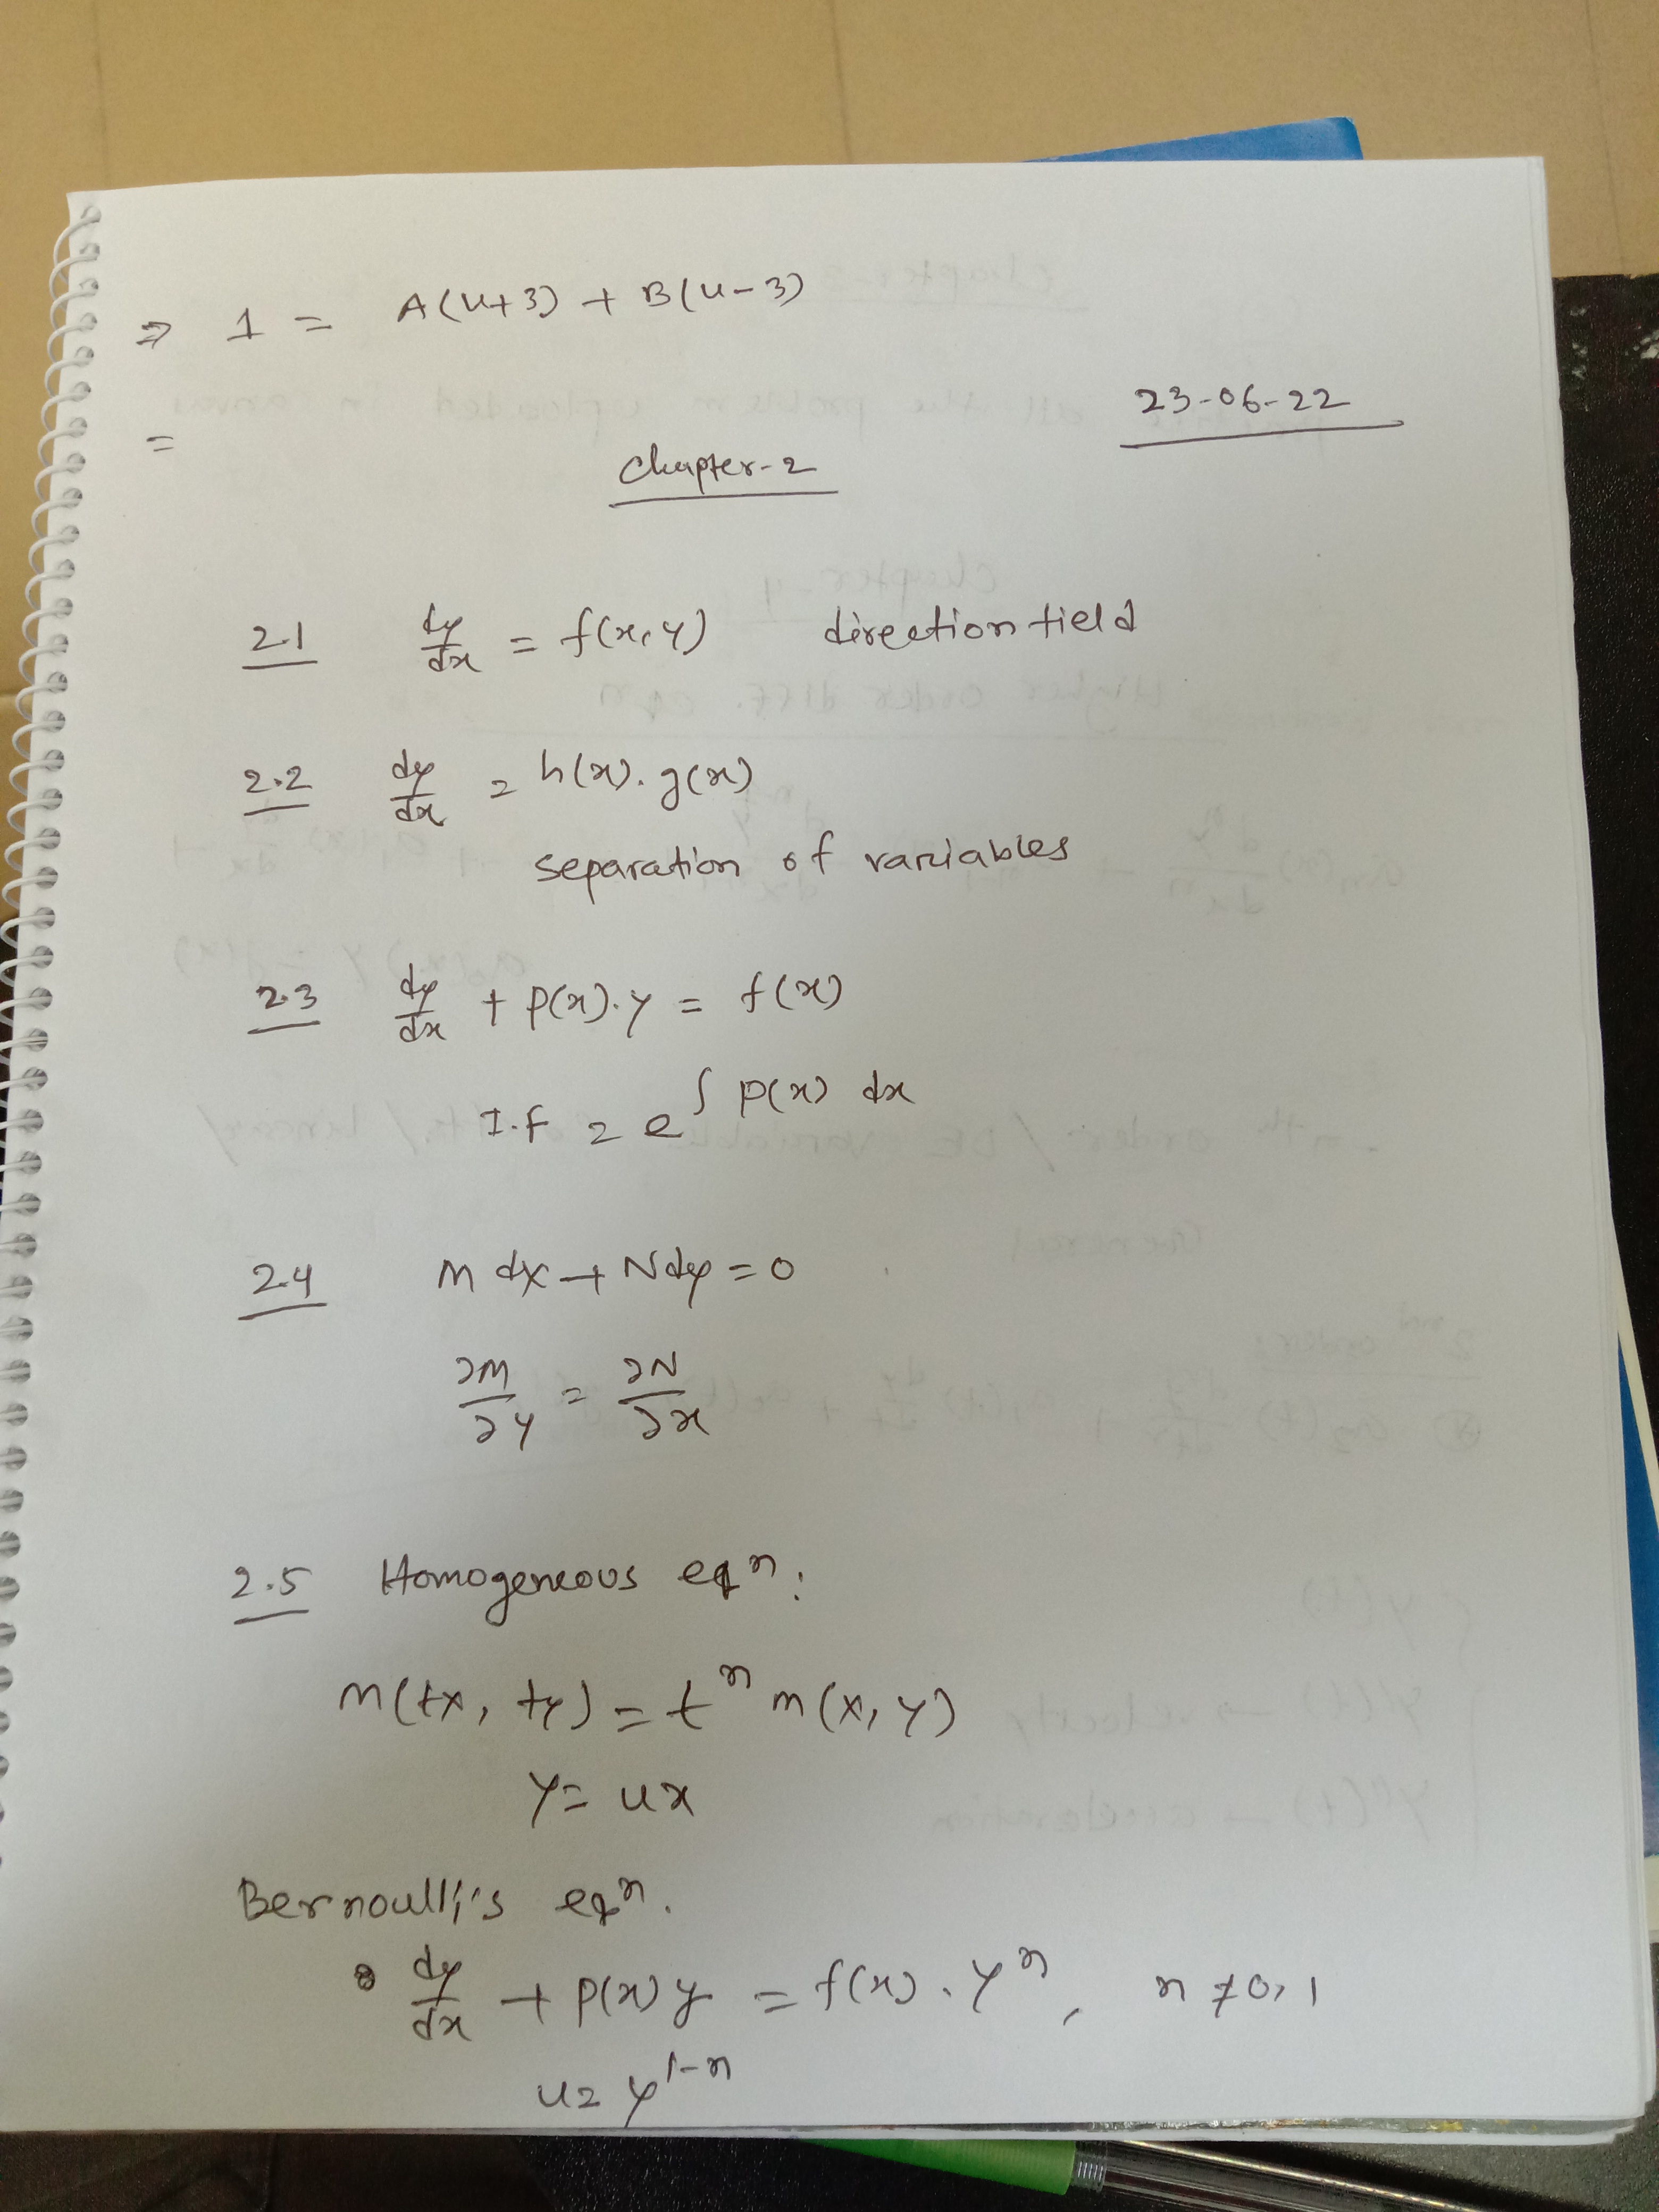 ⇒ 1 = A(u+3) + B(u-3)
23-06-22
=
Chapter-2
2.1 dy/dx = f(x,y) direction field
2.2 dy/dx = h(x).g(x)
separation of variables
2.3 dy/dx + P(x).y = f(x)
I.f = e^∫ P(x) dx
2.4 M dx + N dy = 0
∂M/∂y = ∂N/∂x
2.5 Homogeneous eqn:
M(tx, ty) = t^n M(x, y)
y = ux
Bernoulli's eqn.
dy/dx + P(x) y = f(x) . y^n, n ≠ 0, 1
u = y^1-n